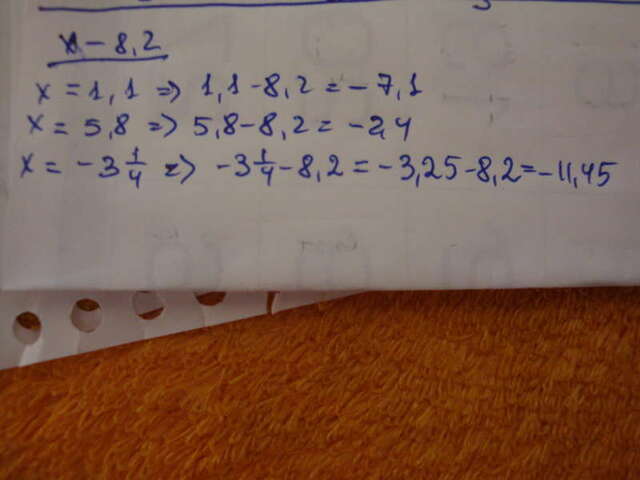 x - 8,2
x = 1,1 => 1,1 - 8,2 = - 7,1
x = 5,8 => 5,8 - 8,2 = - 2,4
x = - 3 1/4 => - 3 1/4 - 8,2 = - 3,25 - 8,2 = - 11,45